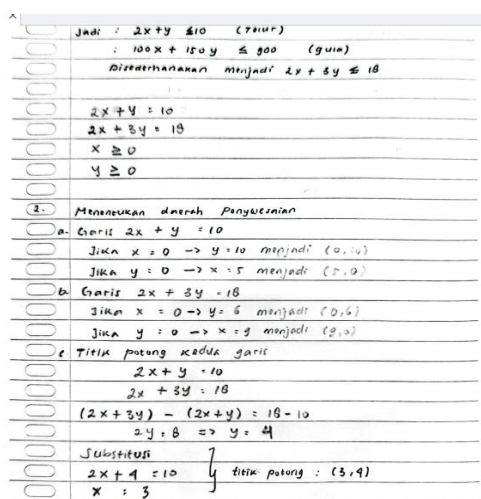 Jadi : 2x+y ≤10 (Telur)
: 100x + 150y ≤ 900 (gula)
Disederhanakan menjadi 2x + 3y ≤ 18
2x+y = 10
2x + 3y = 18
x ≥ 0
y ≥ 0
2. Menentukan daerah Penyelesaian
a. Garis 2x + y = 10
Jika x = 0 -> y = 10 menjadi (0,10)
Jika y = 0 -> x = 5 menjadi (5,0)
b Garis 2x + 3y = 18
Jika x = 0 -> y = 6 menjadi (0,6)
Jika y = 0 -> x = 9 menjadi (9,0)
c Titik potong kedua garis
2x + y = 10
2x + 3y = 18
(2x+3y) - (2x+y) = 18 - 10
2y = 8 => y = 4
Substitusi
2x + 4 = 10 } titik potong : (3,4)
x = 3